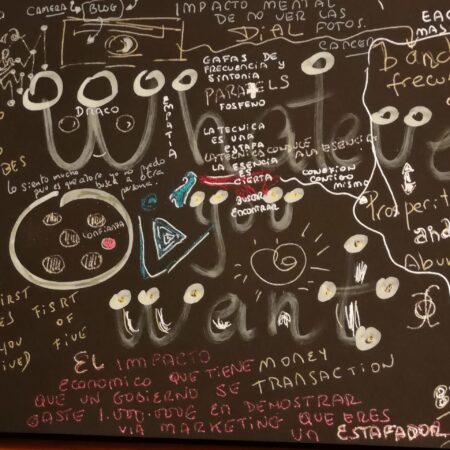 CAMERA
BLOG
IMPACTO MENTAL
DE NO VER LAS
DIAL FOTOS.
CANCER
EAC
MAS
GAFAS DE
FRECUENCIA Y
SINTONIA
PARAELS
FOSFENO
band
frecu
DRACO
EMPATIA
Whateve
LA TECNICA
ES UNA
ETAPA
LA TECNICA CONDUCE A LA ESENCIA
LA ESENCIA
ES
CIERTA
CONEXION
CONTIGO
MISMO
BUSCAR
ENCONTRAR
BES
lo siento mucho
pero es que ahora yo no puedo
busca a otra
persona.
CONFIANZA
you
want
Prosperit
and
Abun
FIRST
FISRT
OF
FIVE
YOU
EL IMPACTO
ECONOMICO QUE TIENE
QUE UN GOBIERNO SE
GASTE 1.000.000€ EN DEMOSTRAR
VIA MARKETING QUE ERES
UN ESTAFADOR
MONEY
TRANSACTION